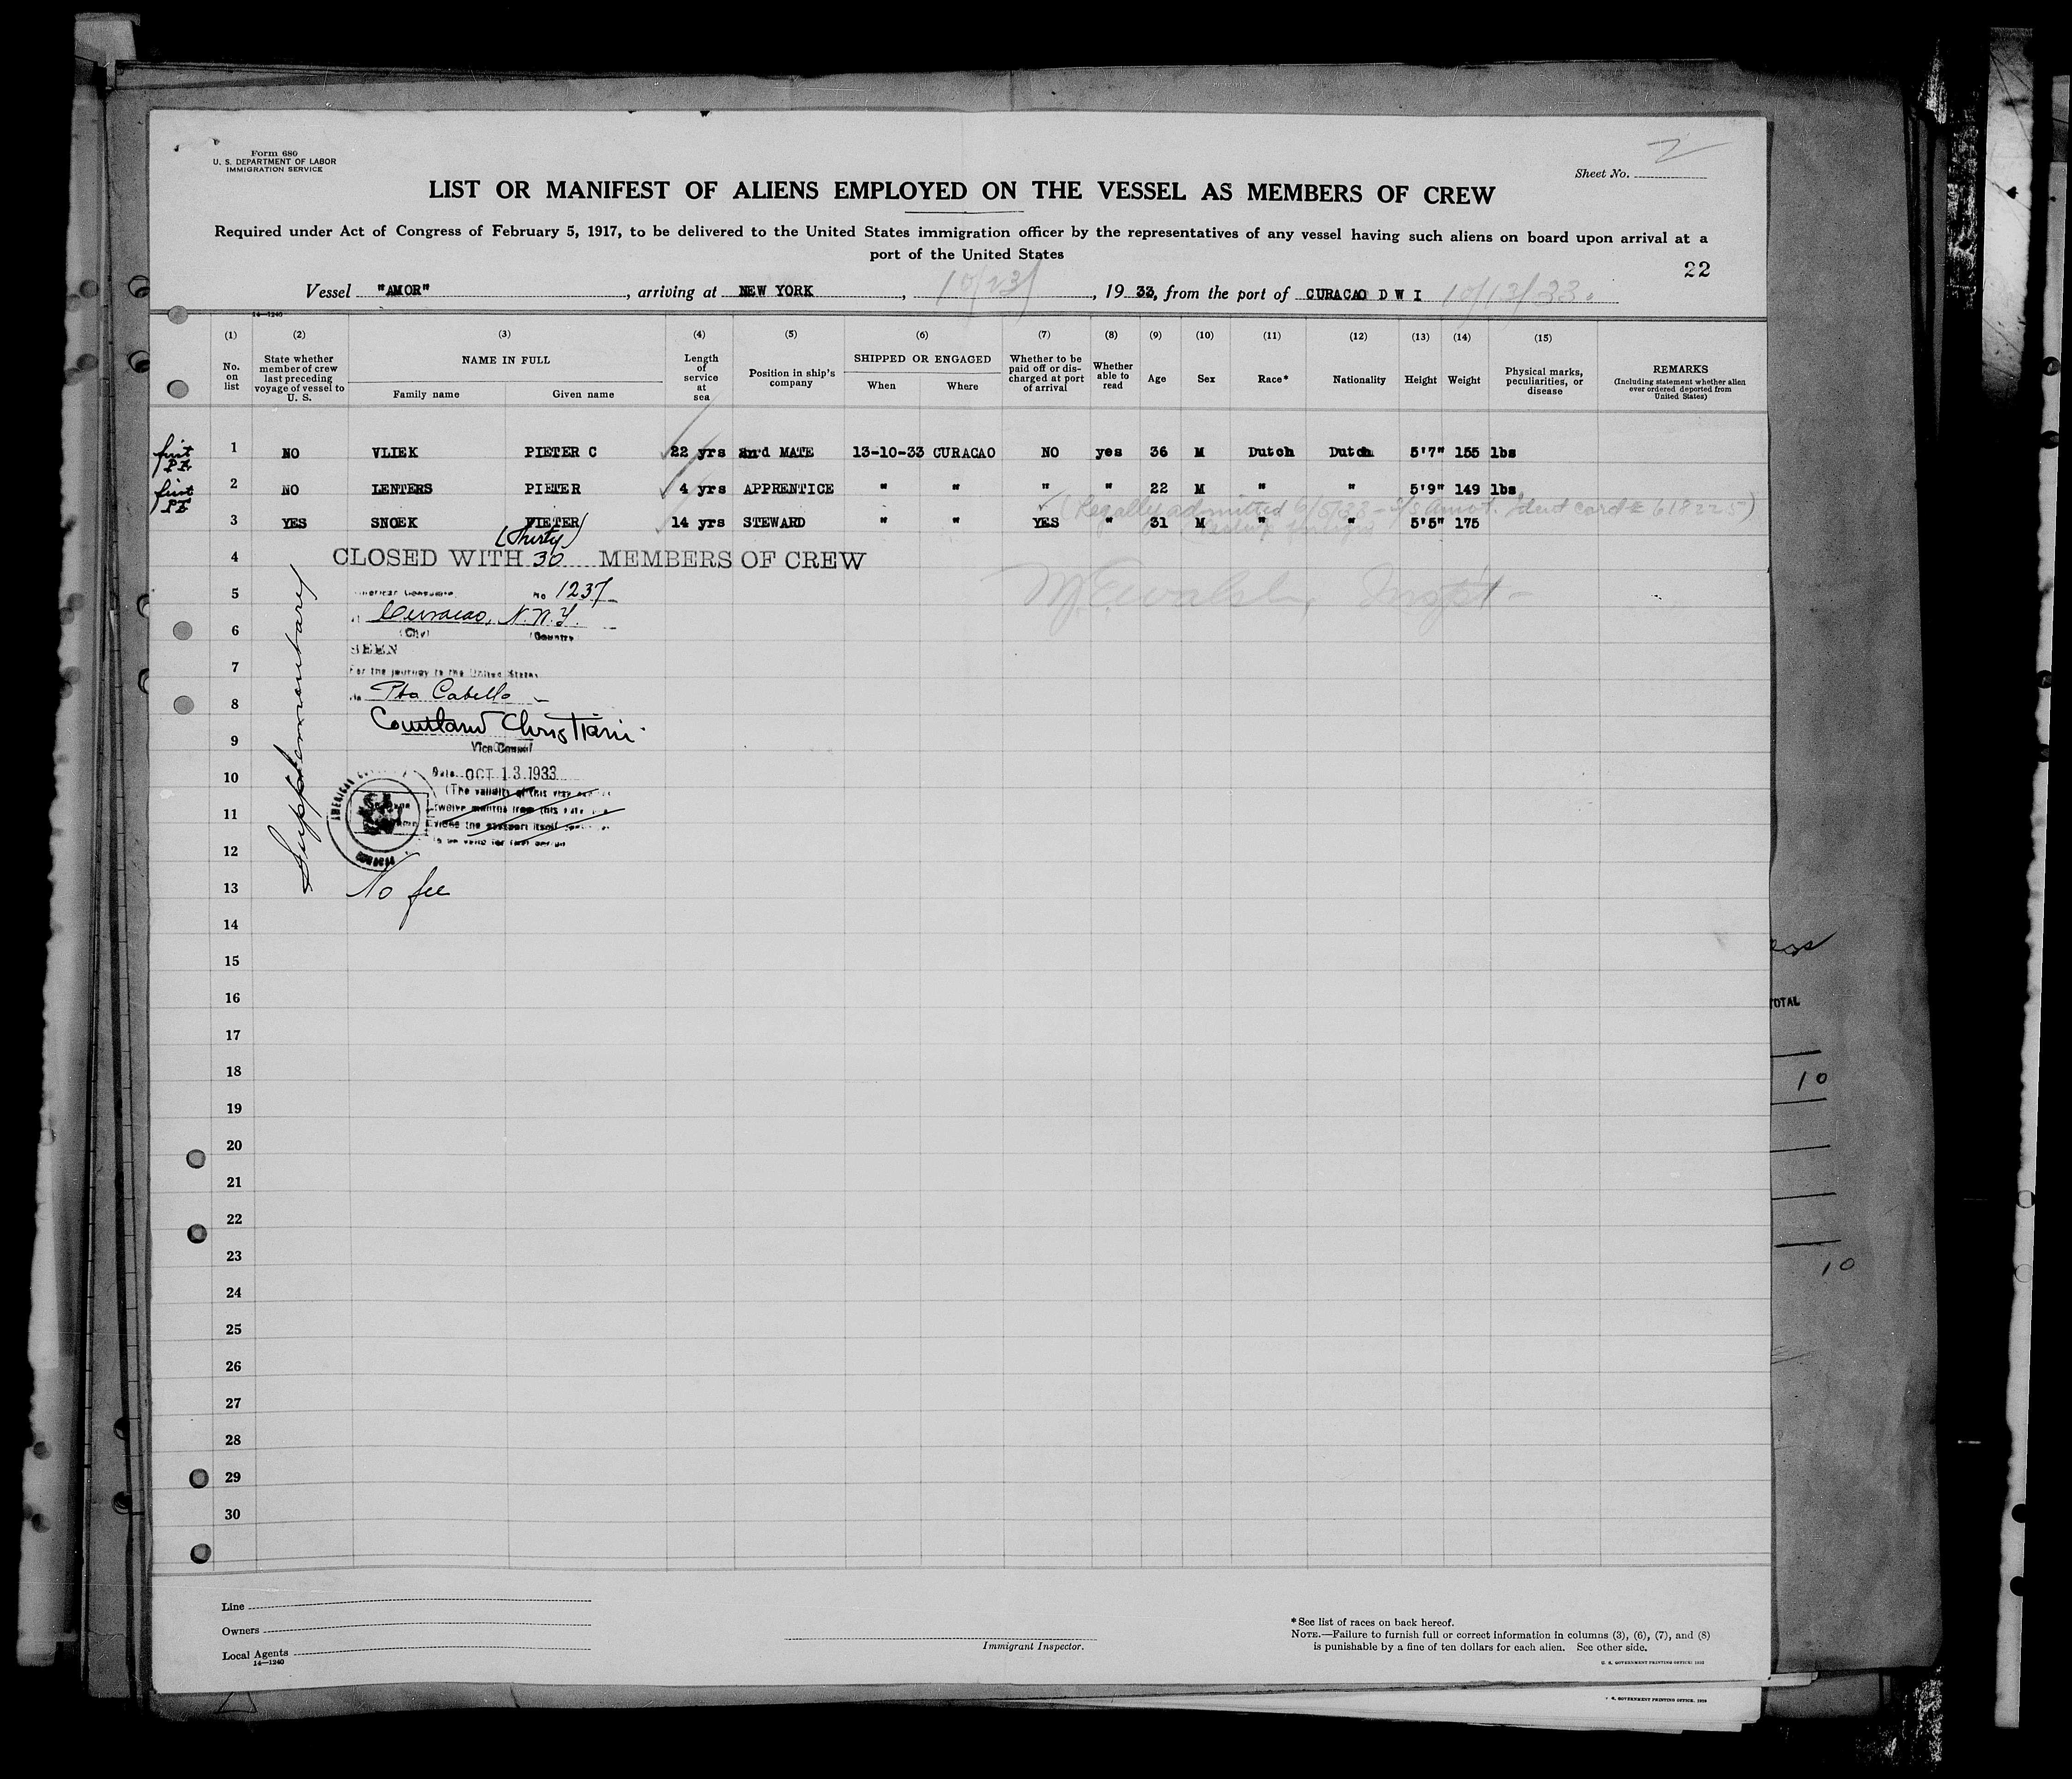 Form 680
U. S. DEPARTMENT OF LABOR
IMMIGRATION SERVICE
2
Sheet No.
LIST OR MANIFEST OF ALIENS EMPLOYED ON THE VESSEL AS MEMBERS OF CREW
Required under Act of Congress of February 5, 1917, to be delivered to the United States immigration officer by the representatives of any vessel having such aliens on board upon arrival at a
port of the United States
22
Vessel "AMOR", arriving at NEW YORK, 10/23/, 1933, from the port of CURACAO D W I 10/13/33.
14—1240
(1) (2) (3) (4) (5) (6) (7) (8) (9) (10) (11) (12) (13) (14) (15)
No. on list
State whether member of crew last preceding voyage of vessel to U. S.
NAME IN FULL
Family name Given name
Length of service at sea
Position in ship's company
SHIPPED OR ENGAGED
When Where
Whether to be paid off or discharged at port of arrival
Whether able to read
Age
Sex
Race*
Nationality
Height
Weight
Physical marks, peculiarities, or disease
REMARKS
(Including statement whether alien ever ordered deported from United States)
first 1 NO VLIEK PIETER C 22 yrs 2nd MATE 13-10-33 CURACAO NO yes 36 M Dutch Dutch 5'7" 155 lbs
first 2 NO LENTERS PIETER 4 yrs APPRENTICE " " " " 22 M " " 5'9" 149 lbs
(Legally admitted 6/5/33 - S/S Amor. Ident card # 618225)
3 YES SNOEK PIETER 14 yrs STEWARD " " YES " 31 M " " 5'5" 175
(Thirty)
4 CLOSED WITH 30 MEMBERS OF CREW
5 American Consulate No 1237
6 Curacao, N.W.I.
(City) (Country)
SEEN
7 For the journey to the United States
8 Pto Cabello
9 Courtland Christiani
Vice Consul
10 Date OCT 13 1933
(The validity of this visa
11 twelve months from this date
the passport itself
12 to be valid for that period
AMERICAN
CURACAO
13 No fee
Supplementary
14
15
16
17
18
19
20
21
22
23
24
25
26
27
28
29
30
TOTAL
10
10
Line
Owners
Local Agents
14—1240
Immigrant Inspector.
*See list of races on back hereof.
NOTE.—Failure to furnish full or correct information in columns (3), (6), (7), and (8)
is punishable by a fine of ten dollars for each alien. See other side.
U. S. GOVERNMENT PRINTING OFFICE: 1932
U. S. GOVERNMENT PRINTING OFFICE: 1928